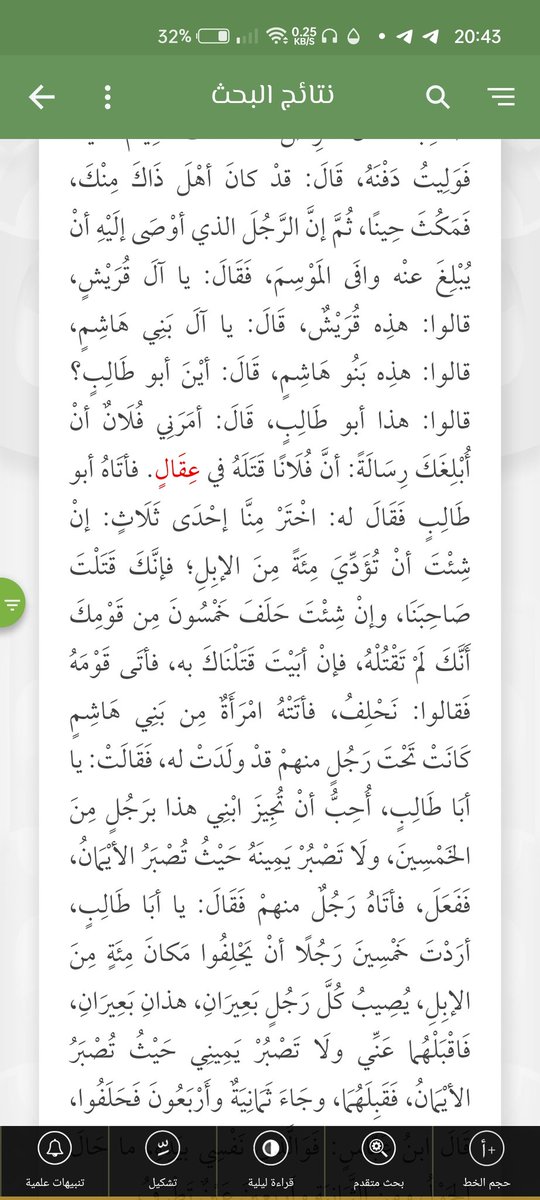 32%
0.25 KB/S
20:43
نتائج البحث
فَوَلِيتُ دَفْنَهُ، قَالَ: قدْ كانَ أهْلَ ذَاكَ مِنْكَ،
فَمَكُثَ حِينًا، ثُمَّ إنَّ الرَّجُلَ الذي أوْصَى إلَيْهِ أنْ
يُبْلِغَ عنْه وافَى المَوْسِمَ، فَقَالَ: يا آلَ قُرَيْشٍ،
قالوا: هذِه قُرَيْشٌ، قَالَ: يا آلَ بَنِي هَاشِمٍ،
قالوا: هذِه بَنُو هَاشِمٍ، قَالَ: أيْنَ أبو طَالِبٍ؟
قالوا: هذا أبو طَالِبٍ، قَالَ: أمَرَنِي فُلَانٌ أنْ
أُبْلِغَكَ رِسَالَةً: أنَّ فُلَانًا قَتَلَهُ في عِقَالٍ. فأتَاهُ أبو
طَالِبٍ فَقَالَ له: اخْتَرْ مِنَّا إحْدَى ثَلَاثٍ: إنْ
شِئْتَ أنْ تُؤَدِّيَ مِئَةً مِنَ الإبِلِ؛ فإنَّكَ قَتَلْتَ
صَاحِبَنَا، وإنْ شِئْتَ حَلَفَ خَمْسُونَ مِن قَوْمِكَ
أنَّكَ لَمْ تَقْتُلْهُ، فإنْ أبَيْتَ قَتَلْنَاكَ به، فأتَى قَوْمَهُ
فَقالوا: نَحْلِفُ، فأتَتْهُ امْرَأَةٌ مِن بَنِي هَاشِمٍ
كَانَتْ تَحْتَ رَجُلٍ منهمْ قدْ ولَدَتْ له، فَقَالَتْ: يا
أبَا طَالِبٍ، أُحِبُّ أنْ تُجِيزَ ابْنِي هذا برَجُلٍ مِنَ
الخَمْسِينَ، ولَا تَصْبُرْ يَمِينَهُ حَيْثُ تُصْبَرُ الأيْمَانُ،
فَفَعَلَ، فأتَاهُ رَجُلٌ منهمْ فَقَالَ: يا أبَا طَالِبٍ،
أرَدْتَ خَمْسِينَ رَجُلًا أنْ يَحْلِفُوا مَكانَ مِئَةٍ مِنَ
الإبِلِ، يُصِيبُ كُلَّ رَجُلٍ بَعِيرَانِ، هذانِ بَعِيرَانِ،
فَاقْبَلْهُما عَنِّي ولَا تَصْبُرْ يَمِينِي حَيْثُ تُصْبَرُ
الأيْمَانُ، فَقَبِلَهُمَا، وجَاءَ ثَمَانِيَةٌ وأَرْبَعُونَ فَحَلَفُوا،
حجم الخط
بحث متقدم
قراءة ليلية
تشكيل
تنبيهات علمية